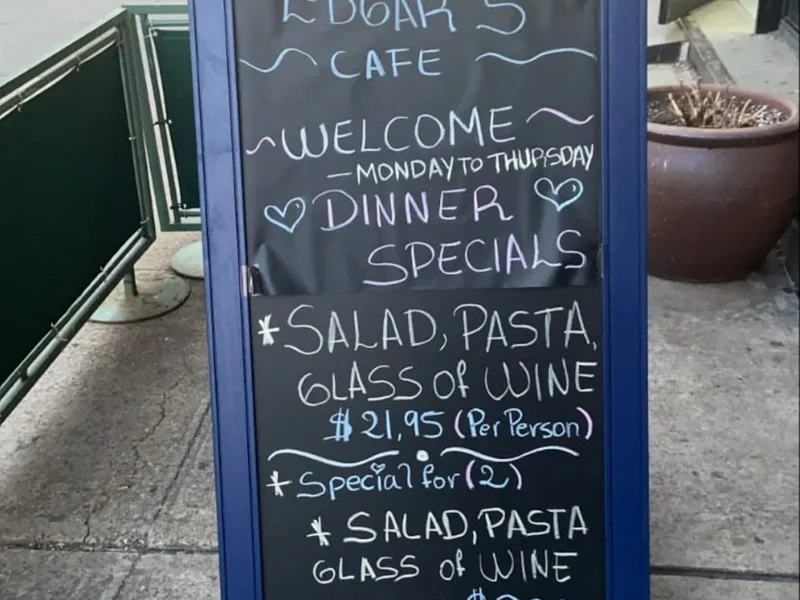 EDGAR'S
CAFE
WELCOME
— MONDAY TO THURSDAY
DINNER
SPECIALS
* SALAD, PASTA,
GLASS of WINE
$21,95 (Per Person)
* Special for (2)
* SALAD, PASTA
GLASS of WINE
$